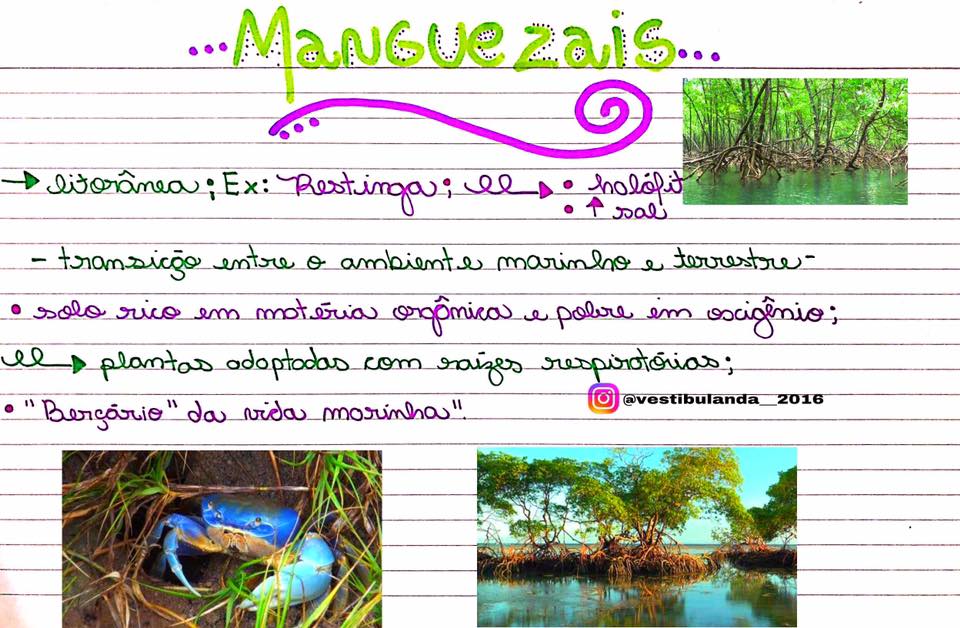 ...Manguezais...
→ litorânea; Ex: Restinga; → • halófit
• ↑ sal
- transição entre o ambiente marinho e terrestre -
• solo rico em matéria orgânica e pobre em oxigênio;
→ plantas adaptadas com raízes respiratórias;
@vestibulanda__2016
• "Berçário" da vida marinha".